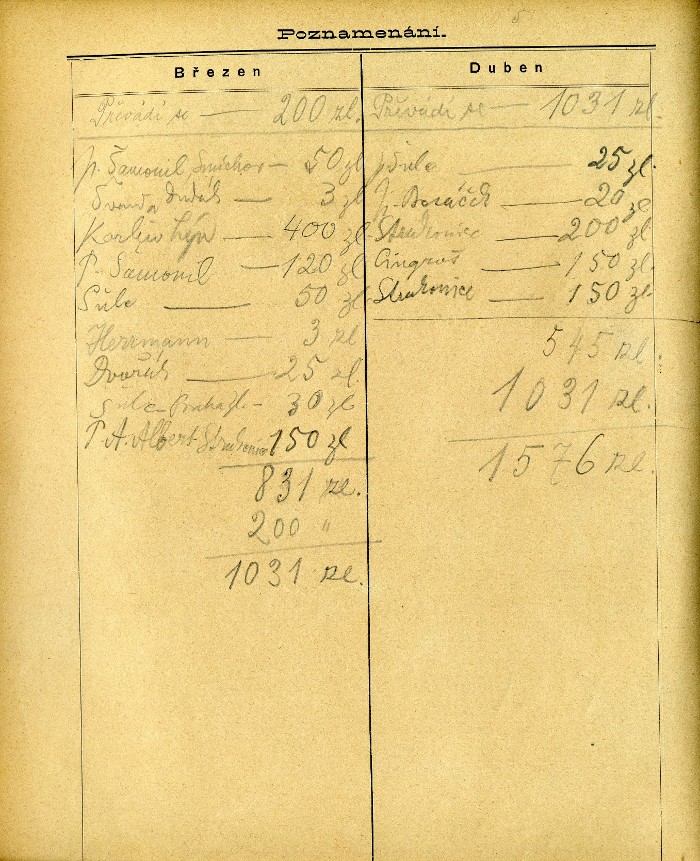 5
Poznamenání.
Březen
Převádí se — 200 zl.
p. Šamonil Smíchov — 50 zl
Švanda dudák — 3 zl
Karlín — 400 zl
P. Šamonil — 120 zl
Šulc — 50 zl
Herrmann — 3 zl
Dvořák — 25 zl
Šulc — 30 zl
P. A. Albert Strakonice 150 zl
831 zl.
200 "
1031 zl.
Duben
Převádí se — 1031 zl.
Šulc — 25 zl.
J. Bosáček — 20 zl
Strakonice — 200 zl
Cingroš — 150 zl
Strakonice — 150 zl
545 zl.
1031 zl.
1576 zl.